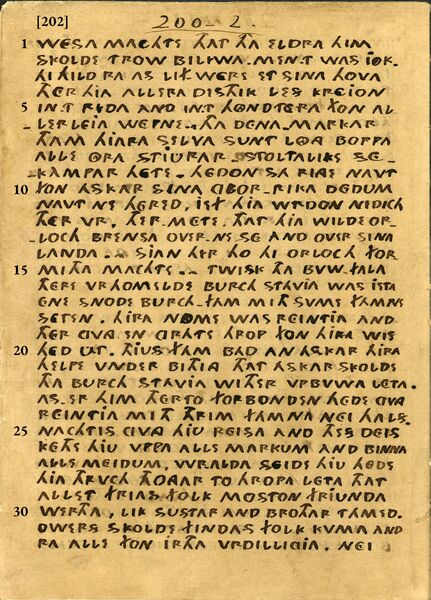 [202]
200–2.
1 WESA MACHTE THAT THA ELDRA HIM
SKOLDE TROW BILIWA. MEN.T WAS IOK.
HI HILD RA AS LITWERE ET SINA HOVA
THER HIA ALLERA DISTHIK LES KREJON
5 IN.T RIDA AND IN.T HONDTERA FON AL_
LERLEIA WEPNE.. THA DENA_MARKAR
THAM HIARA SELVA SUNT LONGA BOPPA
ALLE ORA STIURAR. STOLTALIKE SE_
KAMPAR HETE. HEDON SA RING NAVT
10 FON ASKAR SINA GLOR.RIKA DEDUM
NAVT NE HERED, IEF HIA WRDON NIDICH
THER VR. THER.METE, THAT HIA WILDE OR_
LOCH BRENSA OVER.NE SE AND OVER SINA
LANDA.. SIAN HIR HO HI ORLOCH FOR
15 MITHA MACHTE.. TWISK THA BVW.FALA
THERE VRHOMELDE BURCH STAVIA WAS ISTA
ENE SNODE BURCH.FAM MITH SUME FAMNA
SETEN. HIRA NOME WAS REINTIA AND
THER GVNG EN GRATE HROP FON HIRA WIS
20 HED UT. THIUS FAM BAD AN ASKAR HIRA
HELPE VNDER BITHING THAT ASKAR SKOLDE
THA BURCH STAVIA WITHER VPBVWA LETA.
AS.ER HIM THERTO FORBONDEN HEDE GVNG
REINTIA MITH THRIM FAMNA NEI HALS.
25 NACHTIS GVNG HIU REISA AND THES DEIS
KETHE HIU VPPA ALLE MARKUM AND BINNA
ALLE MEIDUM. WRALDA SEIDE HIU HEDE
HIA THRVCH THONGAR TO HROPA LETA THAT
ALLET FRIAS FOLK MOSTON FRIUNDA
30 WERTHA, LIK SUSTAR AND BROTHAR TAMED.
OWERS SKOLDE FINDAS FOLK KUMA AND
RA ALLE FON IRTHA VRDILLIGIA. NEI